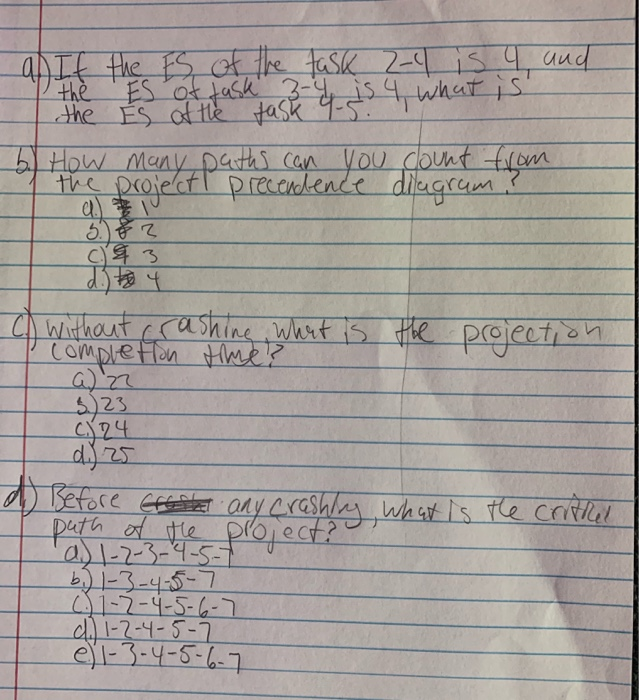 a) If the ES of the task 2-4 is 4, and
the ES of task 3-4 is 4, what is
the ES of the task 4-5.
b) How many paths can you count from
the project precendence diagram?
a.) 1
b.) 2
c) 3
d.) 4
c) without crashing, what is the projection
completion time?
a) 22
b.) 23
c.) 24
d.) 25
d.) Before any crashing, what is the critical
path of the project?
a) 1-2-3-4-5-7
b.) 1-3-4-5-7
c.) 1-2-4-5-6-7
d.) 1-2-4-5-7
e) 1-3-4-5-6-7